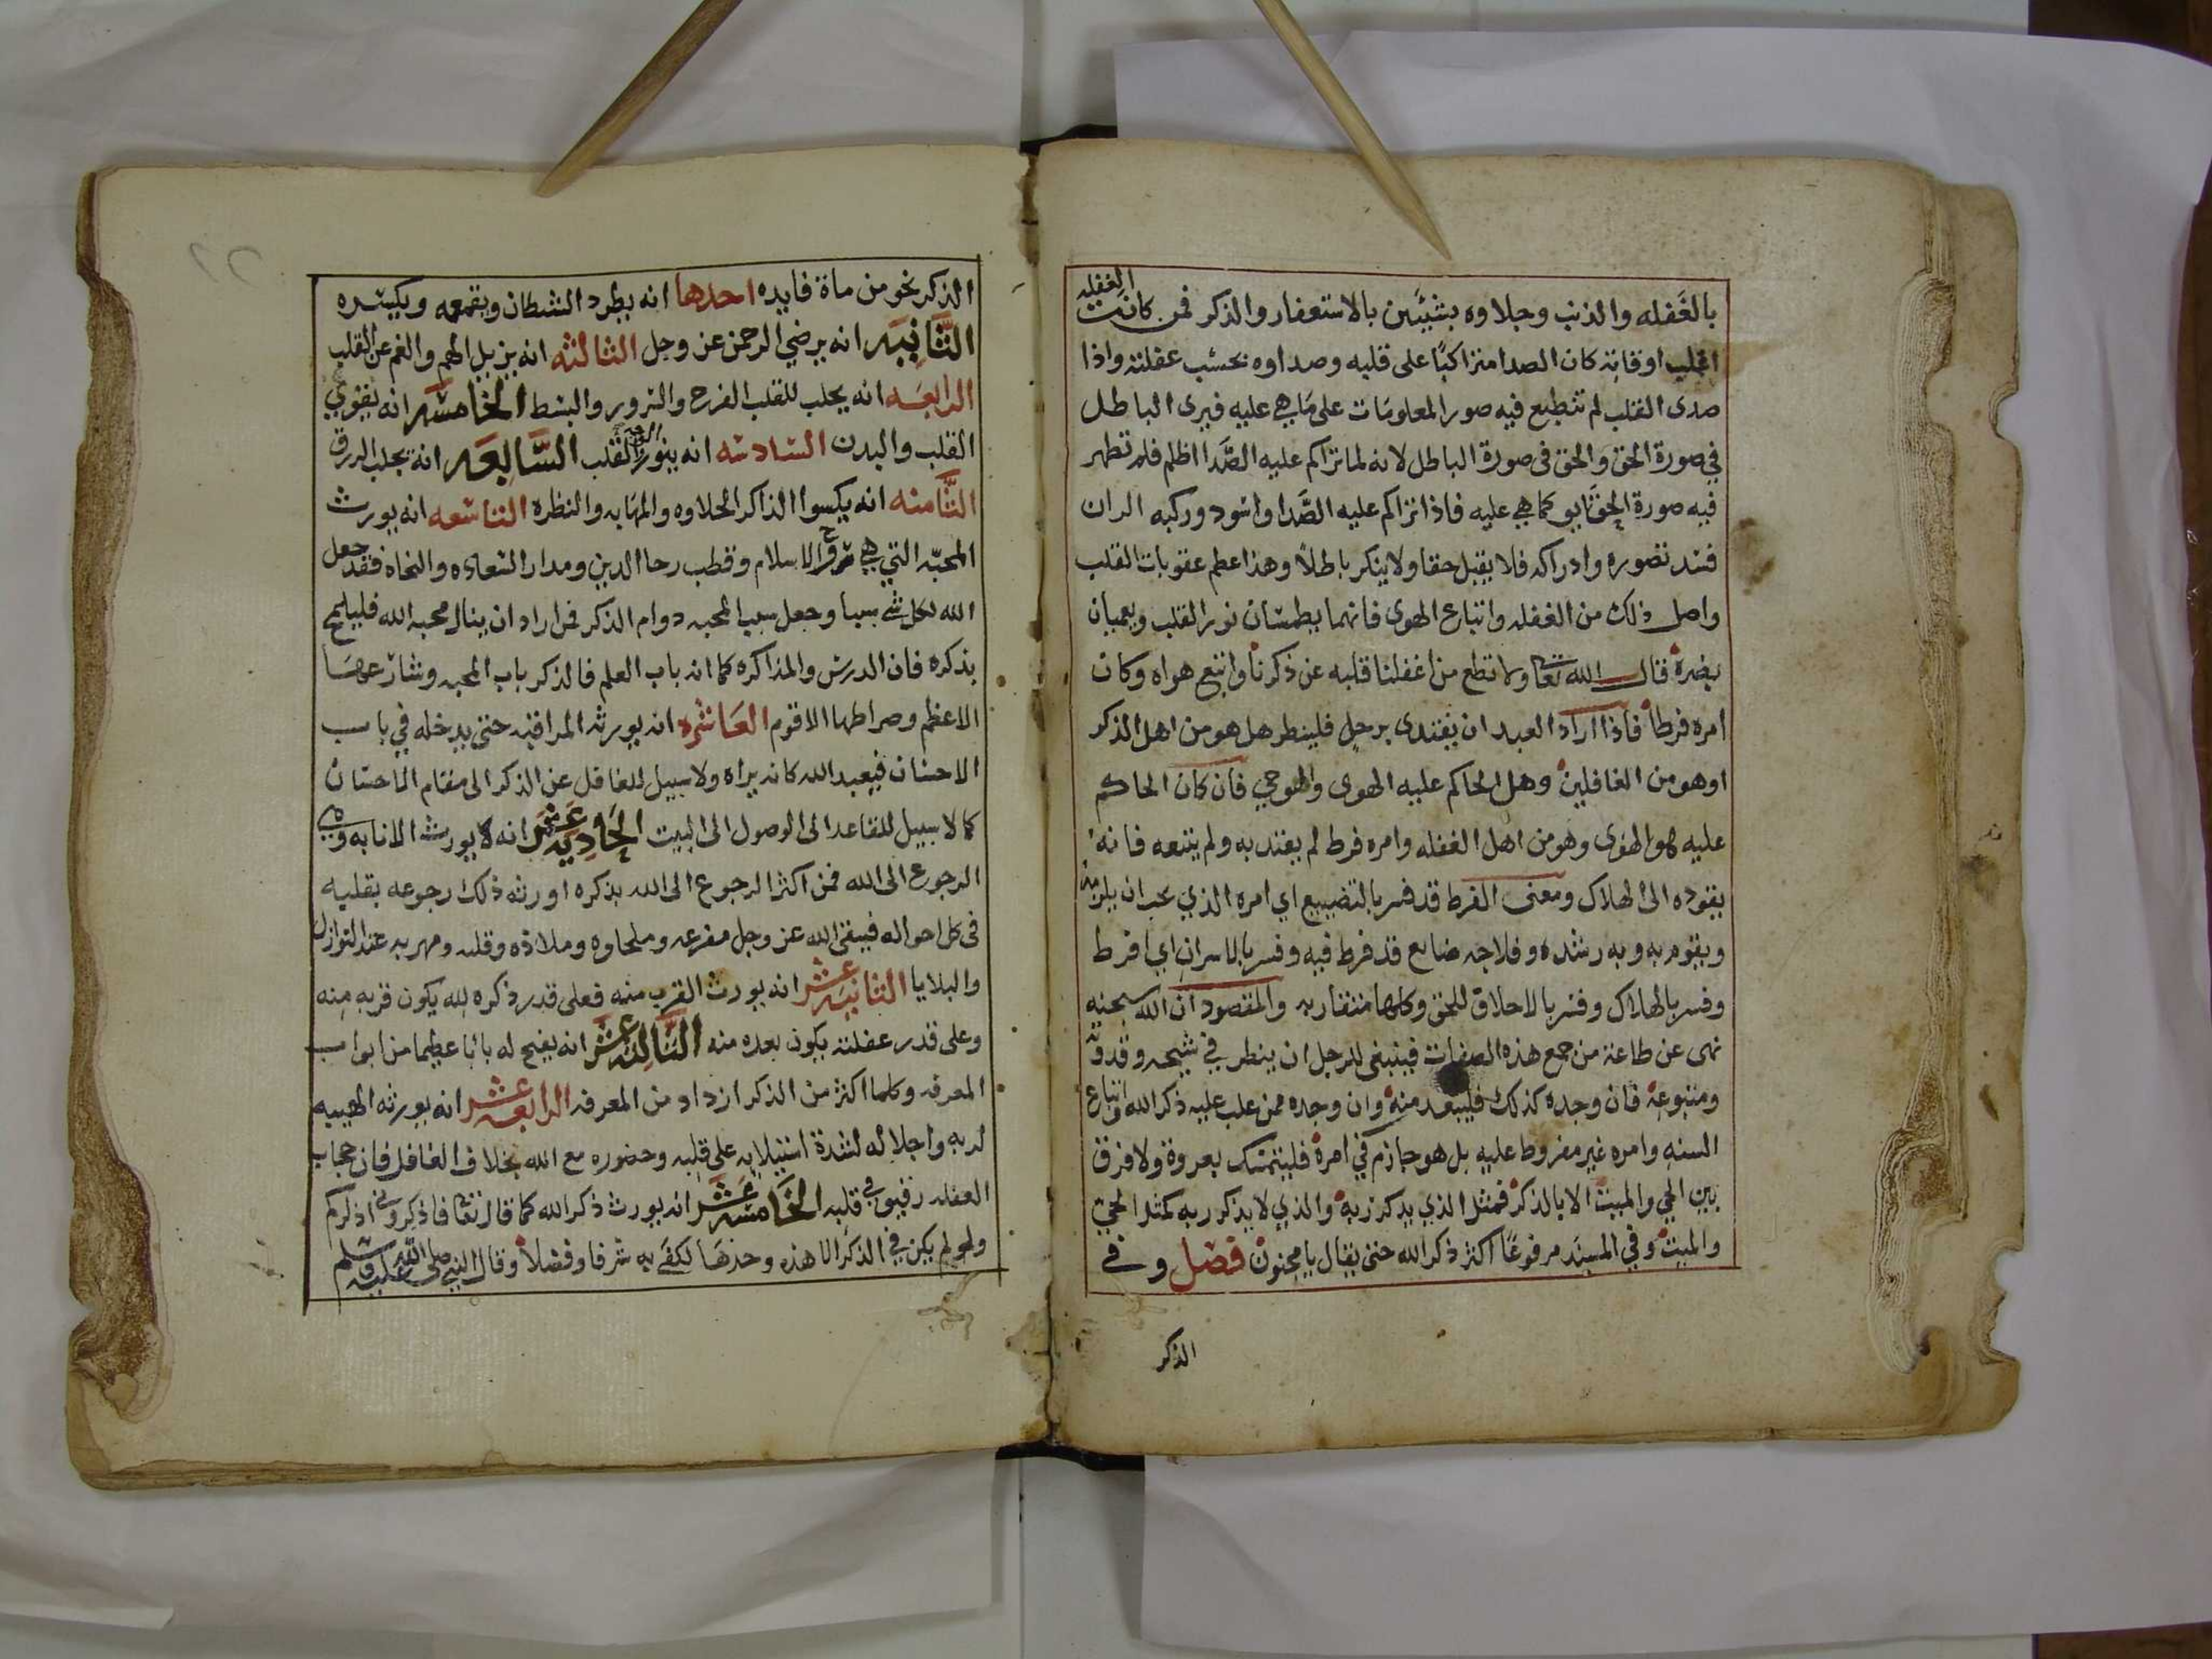 بالغفله والذنب وجلاوه بشيئين بالاستغفار والذكر فمن كانت الغفله
اغلب اوقاته كان الصدا متراكبًا على قلبه وصداوه بحسب غفلته واذا
صدى القلب لم تنطبع فيه صور المعلومات على ما هي عليه فيرى الباطل
في صورة الحق والحق في صورة الباطل لانه لما تراكم عليه الصَّدا اظلم فلم تظهر
فيه صورة الحق كما هي عليه فاذا تراكم عليه الصَّدا واسود وركبه الران
فسد تصوره وادراكه فلا يقبل حقا ولا ينكر باطلًا وهذا اعظم عقوبات القلب
واصل ذلك من الغفله واتباع الهوى فانهما يطمسان نور القلب ويعميان
بصره قال الله تعا ولا تطع من اغفلنا قلبه عن ذكرنا واتبع هواه وكان
امره فرطا فاذا اراد العبد ان يقتدى برجل فلينظر هل هو من اهل الذكر
او هو من الغافلين وهل الحاكم عليه الهوى والوحي فان كان الحاكم
عليه هو الهوى وهو من اهل الغفله وامره فرط لم يقتد به ولم يتبعه فانه
يقوده الى الهلاك ومعنى الفرط قد فسر بالتضييع اي امره الذي يجب ان يلزمه
ويقوم به وبه رشده وفلاحه ضايع قد فرط فيه وفسر بالاسراف اي افرط
وفسر بالهلاك وفسر بالاخلاق للحق وكلها متقاربه والمقصود ان الله سبحنه
نهى عن طاعة من جمع هذه الصفات فينبغي للرجل ان ينظر في شيخه وقدوته
ومتبوعه فان وجده كذلك فليبعد منه وان وجده ممن غلب عليه ذكر الله واتباع
السنه وامره غير مفروط عليه بل هو حازم في امره فليتمسك بعروة ولا فرق
بين الحي والميت الا بالذكر فمثل الذي يذكر ربه والذي لا يذكر ربه كمثل الحي
والميت وفي المسند مرفوعًا اكثر ذكر الله حتى يقال يا مجنون فصل وفي
الذكر
الذكر نحو من ماة فايده احدها انه يطرد الشيطان ويقمعه ويكسره
الثَّانيَه انه يرضي الرحمن عز وجل الثالثه انه يزيل الهم والغم عن القلب
الرابعه انه يجلب للقلب الفرح والسرور والبسط الخامسَه انه يقوي
القلب والبدن السادسه انه ينور الوجه والقلب السَّابعَه انه يجلب الرزق
الثَّامنه انه يكسوا الذاكر الحلاوه والمهابه والنظره التاسعه انه يورث
المحبّه التي هي روح الاسلام وقطب رحا الدين ومدار السعاده والنجاه فقد جعل
الله لكل شي سببا وجعل سبب المحبه دوام الذكر فمن اراد ان ينال محبه الله فليلهج
بذكره فان الدرس والمذاكره كما انه باب العلم فالذكر باب المحبه وشارعها
الاعظم وصراطها الاقوم العَاشره انه يورثه المراقبه حتى يدخله في باب
الاحسان فيعبد الله كانه يراه ولا سبيل للغافل عن الذكر الى مقام الاحسان
كما لا سبيل للقاعد الى الوصول الى البيت الحَاديَه عشَر انه لا يورث الانابه وهي
الرجوع الى الله فمن اكثر الرجوع الى الله بذكره اورثه ذلك رجوعه بقلبه
في كل احواله فيبقى الله عز وجل مفزعه وملجاوه وملاذه وقلبه ومهربه عند النوازل
والبلايا الثانيَه عشر انه يورث القرب منه فعلى قدر ذكره لله يكون قربه منه
وعلى قدر غفلته يكون بعده منه الثَّالثه عشَر انه يفتح له بابا عظيما من ابواب
المعرفه وكلما اكثر من الذكر ازداد من المعرفه الرابعه عشر انه يورثه الهيبه
لربه واجلاله لشدة استيلايه على قلبه وحضوره مع الله بخلاف الغافل فان حجاب
الغفله رقيق في قلبه الخَامسَه عشَر انه يورث ذكر الله كما قال تعا فاذكروني اذكركم
ولو لم يكن في الذكر الا هذه وحدها لكفى به شرفا وفضلًا وقال النبي صلى الله عليه وسلم